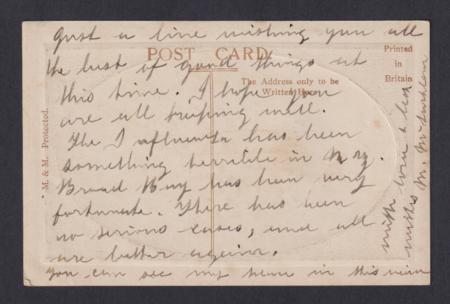 Just a line wishing you all
the best of good things at
this time. I hope you
are all keeping well.
The Influenza has been
something terrible in N.Z.
Broad Bay has been very
fortunate. There has been
no serious cases, and all
are better again.
You can see my home in this view
with love &
M.
POST CARD.
The Address only to be
Written Here.
Printed
in
Britain
M & M Protected.